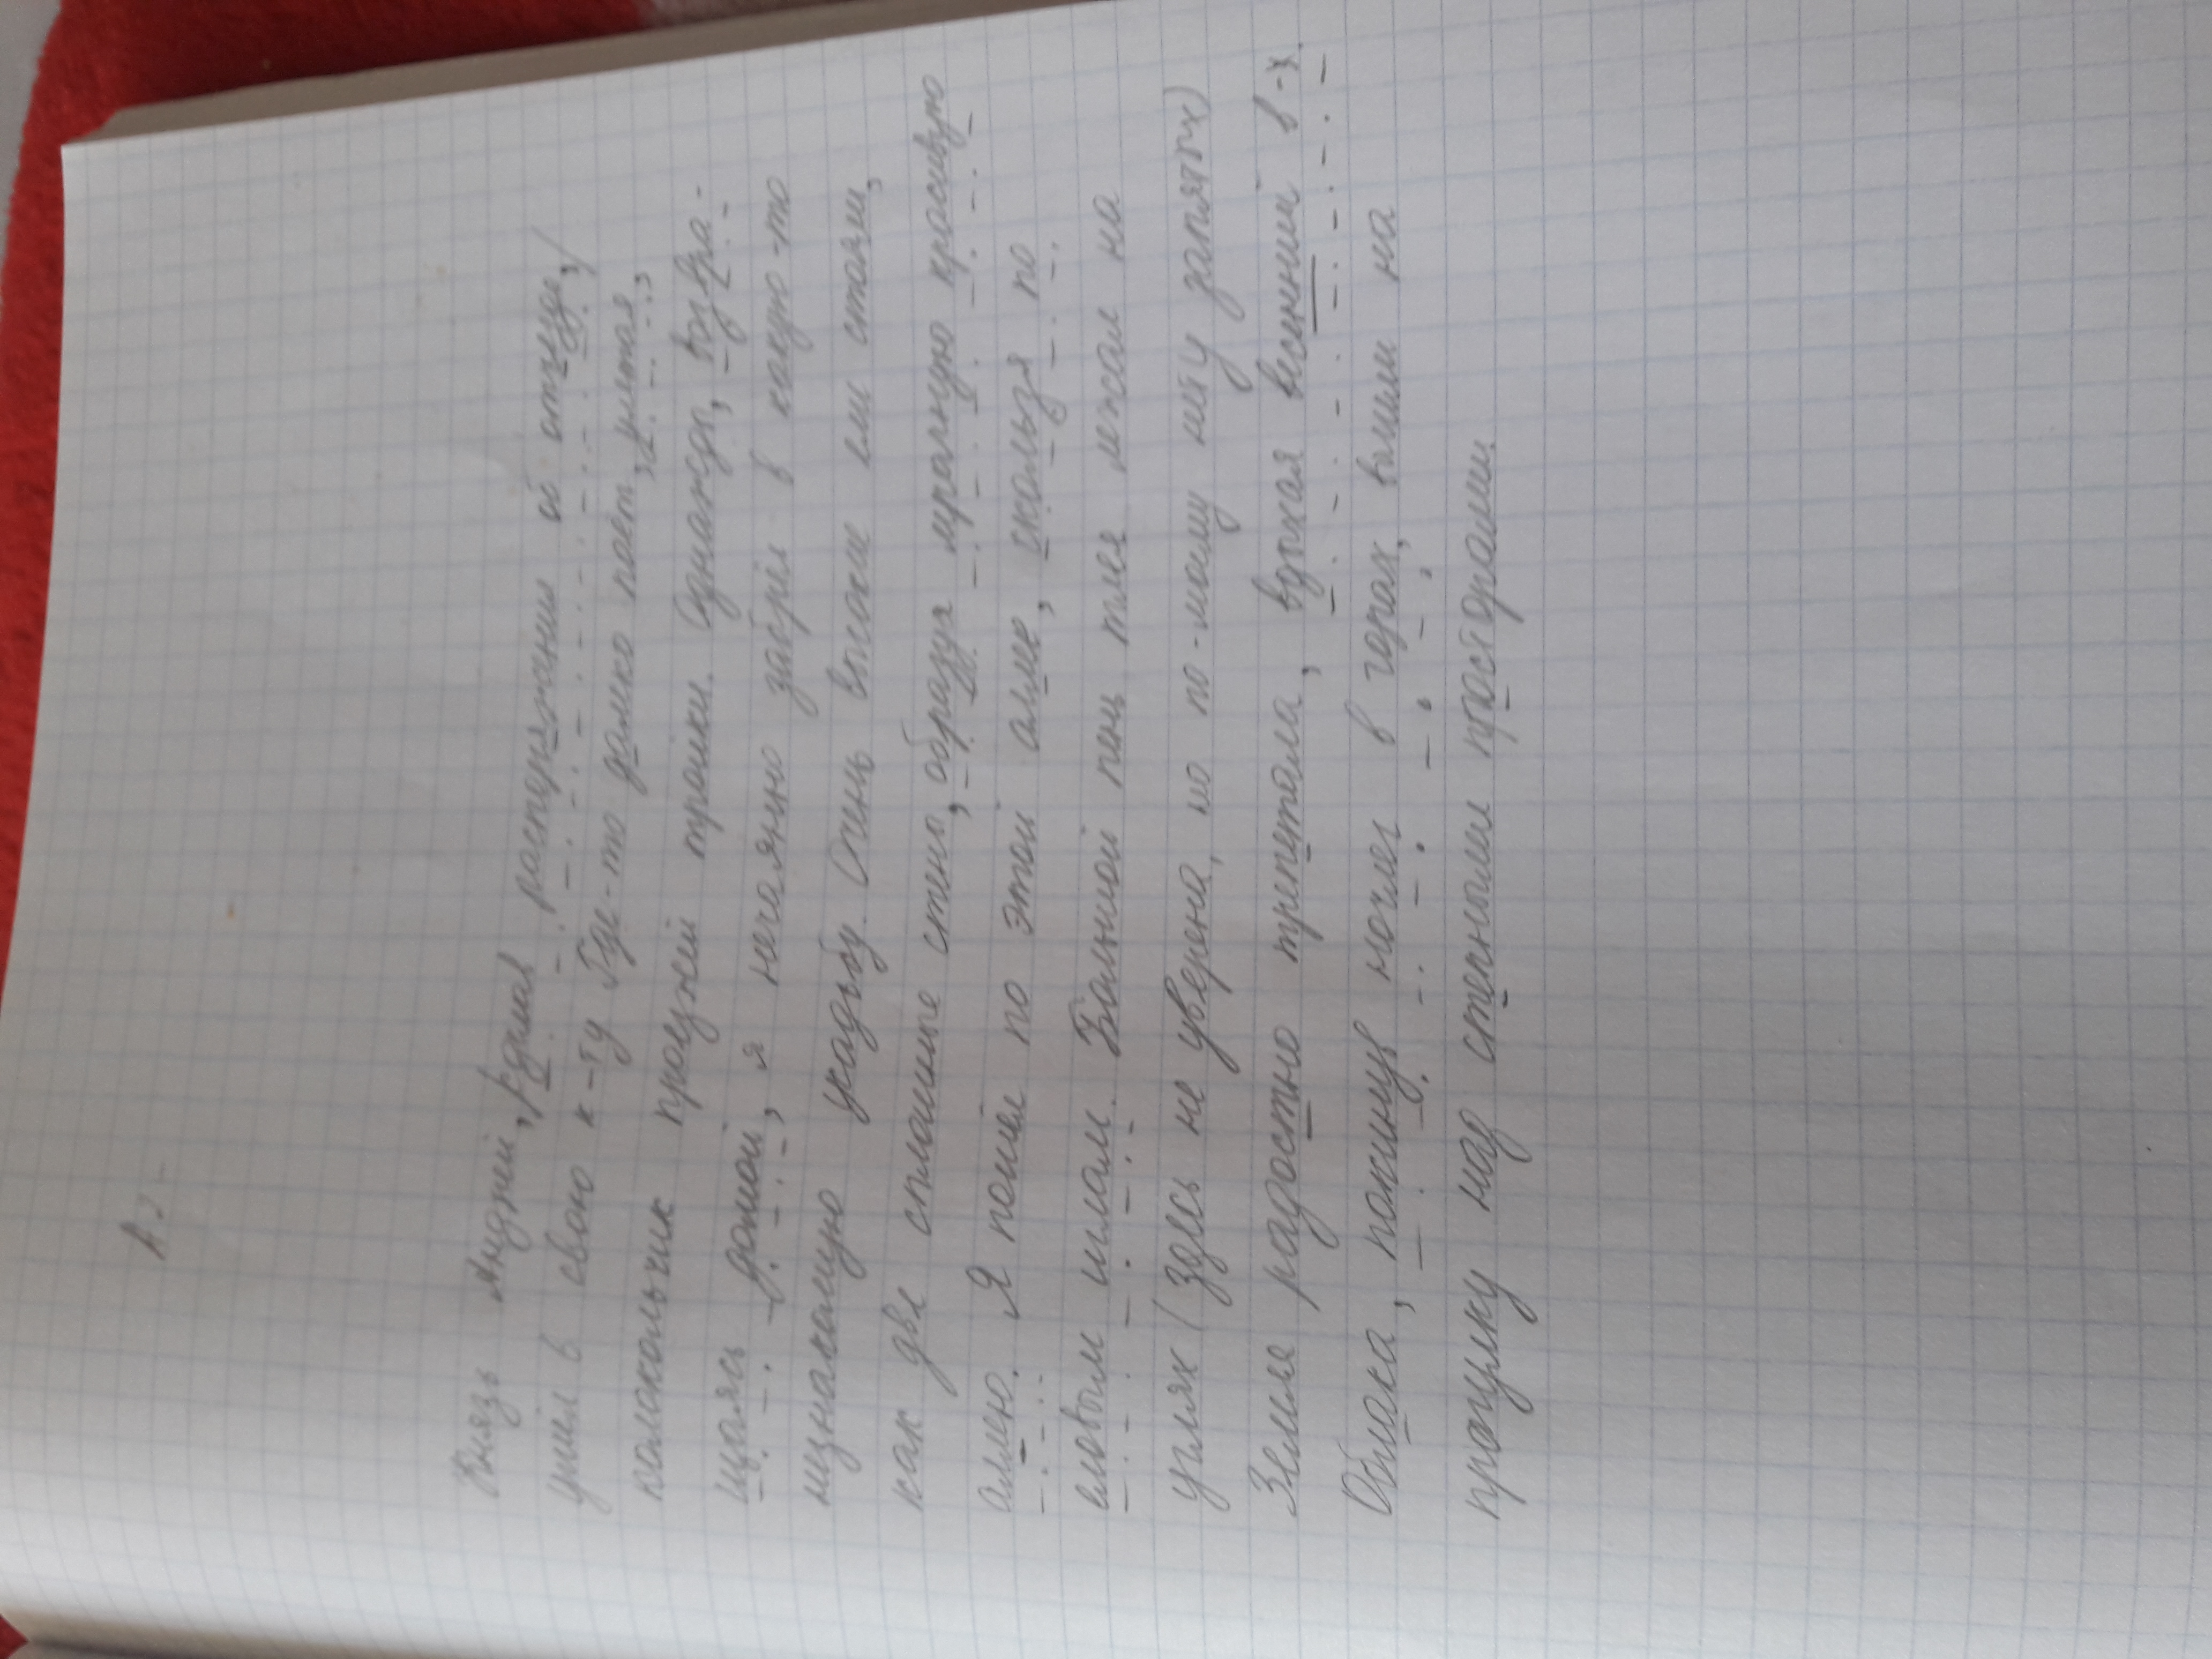 А2-
Князь Андрей, сделав распоряжения об отъезде,
ушёл в свою к-ту Где-то далеко поёт, улетая,
колокольчик проезжей тройки. Однажды, возвра-
щаясь домой, я нечаянно забрёл в какую-то
незнакомую усадьбу. Очень высокие ели стояли,
как две сплошные стены, образуя мрачную красивую
аллею. Я пошёл по этой аллее, скользя по
еловым иглам. Больной пень тлея лежал на
углях (здесь не уверена, но по-моему нету запятых)
Земля радостно трепетала, вдыхая весенний в-х.
Облака, покинув ночлег в горах, вышли на
прогулку над степными просторами.